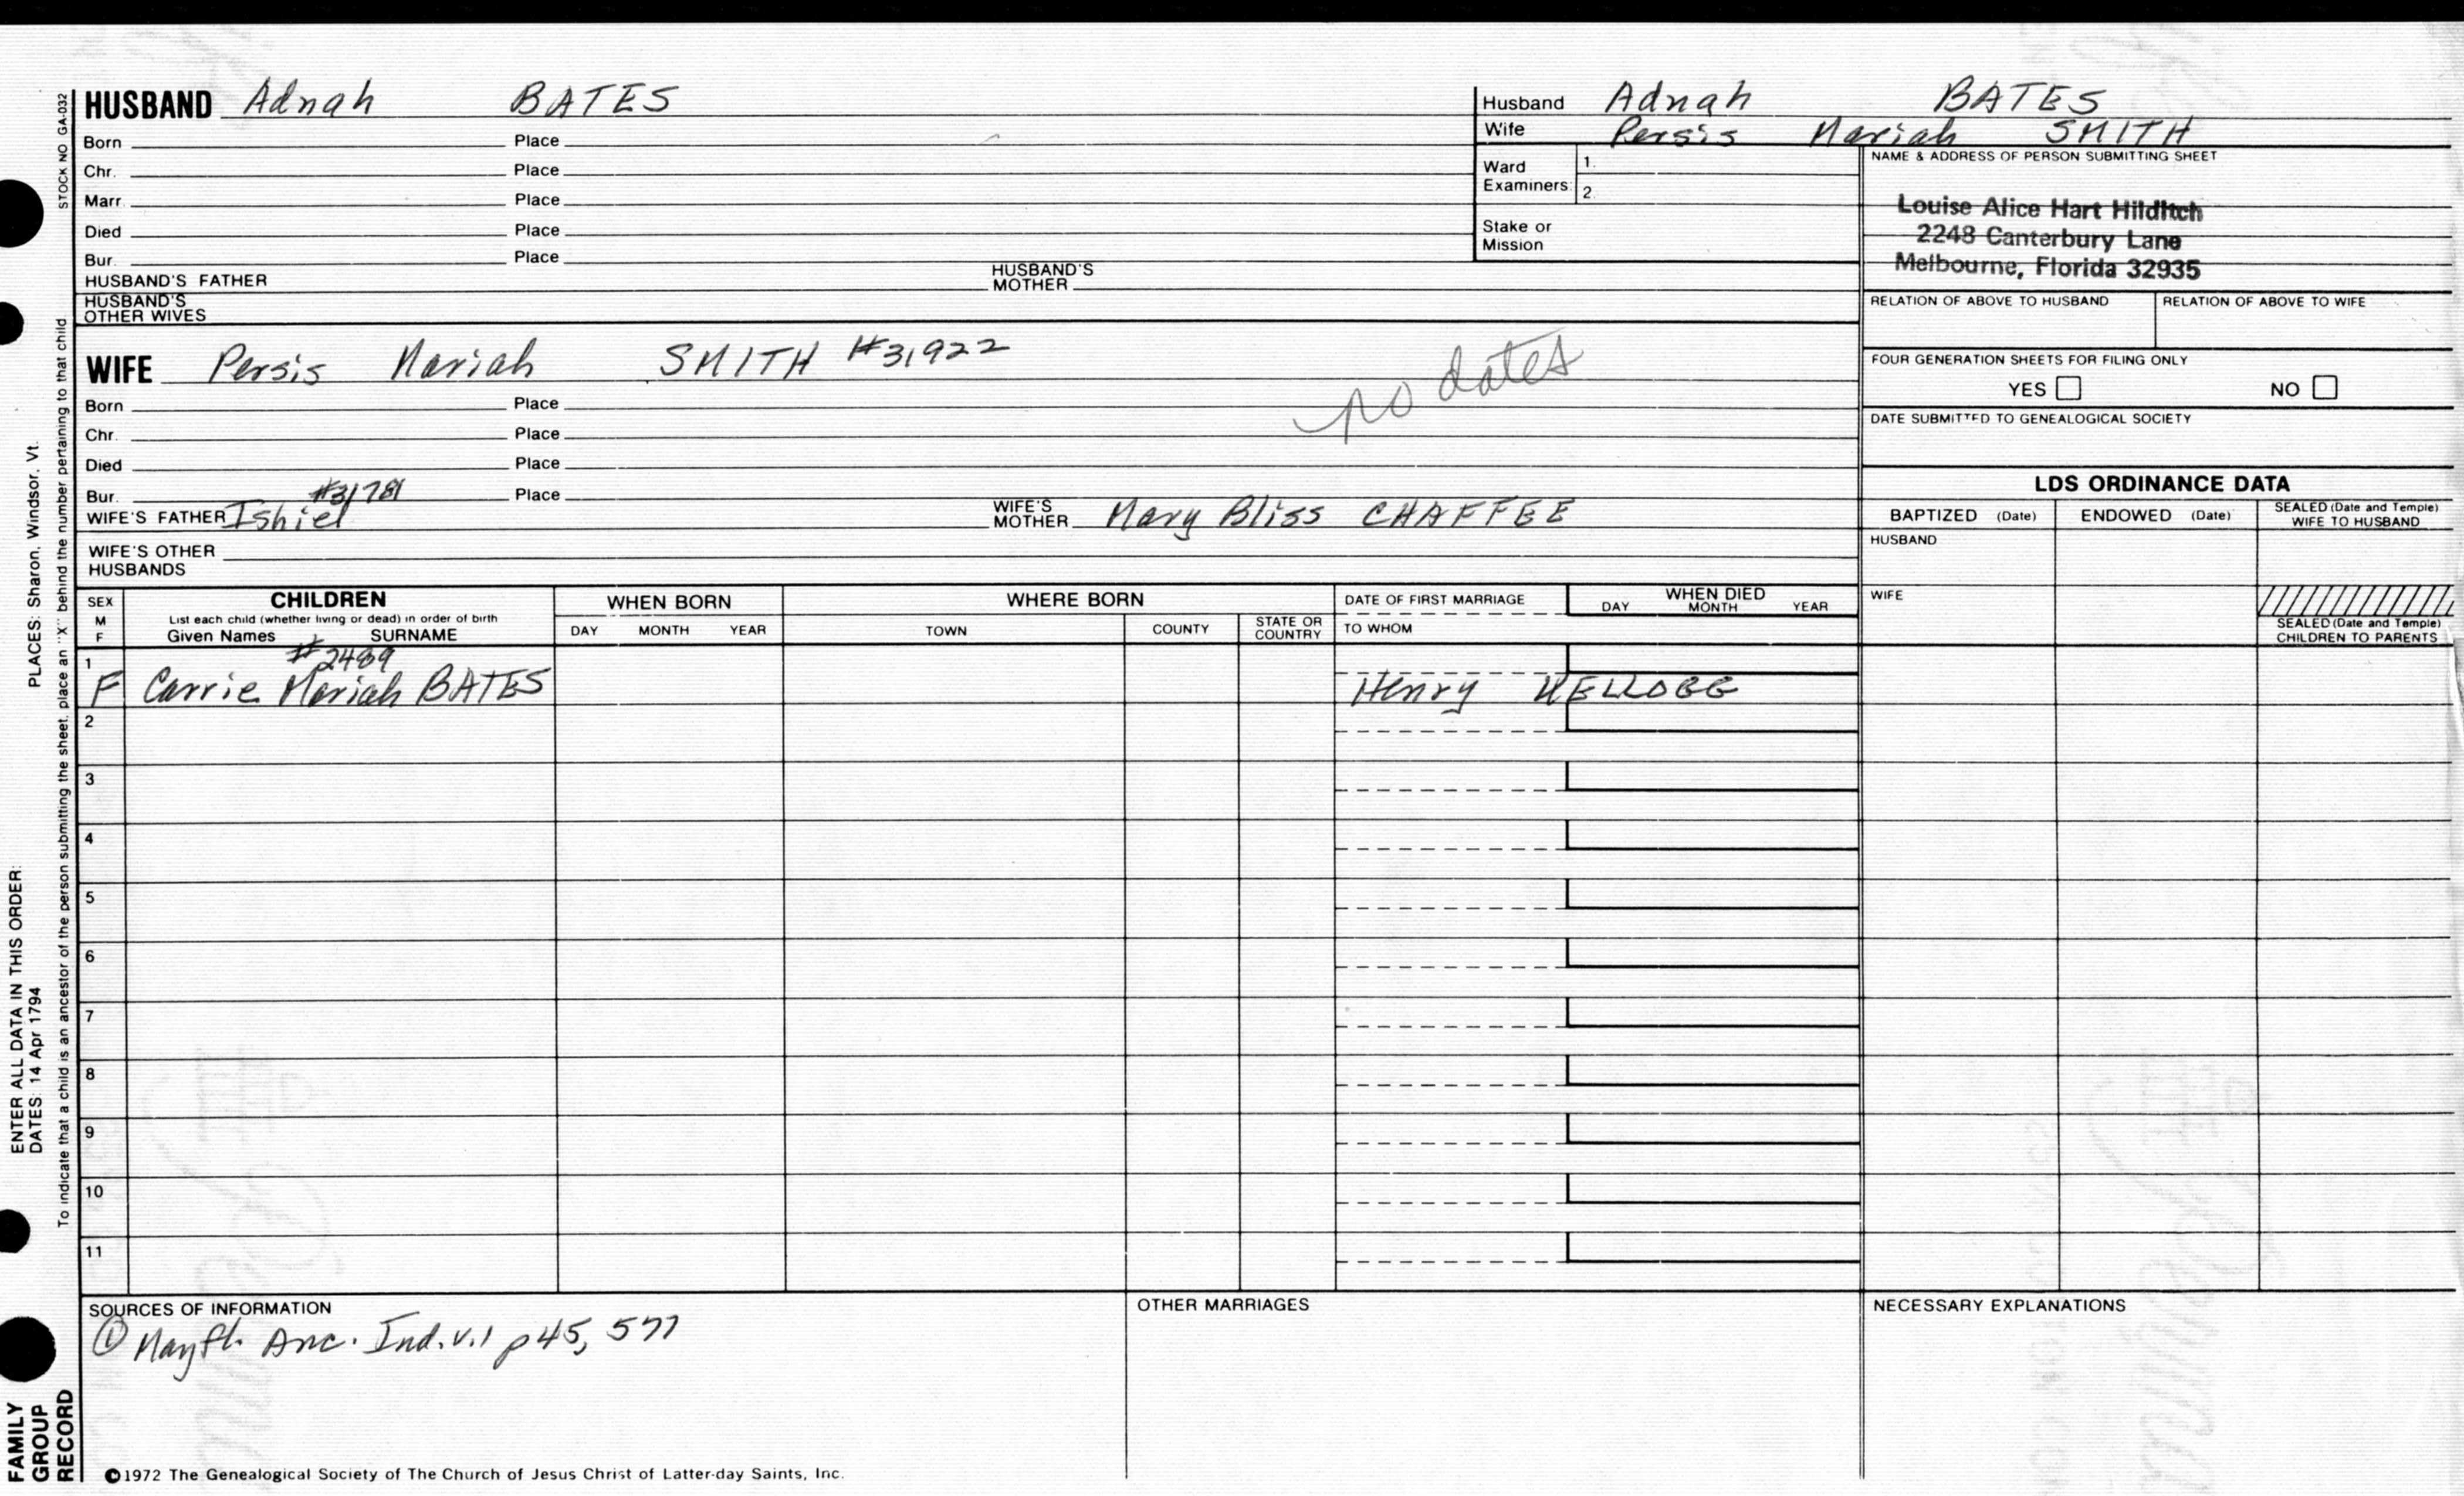 HUSBAND Adnah BATES
Born Place
Chr. Place
Marr. Place
Died Place
Bur. Place
HUSBAND'S FATHER HUSBAND'S MOTHER
HUSBAND'S OTHER WIVES
Husband Adnah BATES
Wife Persis Mariah SMITH
Ward Examiners: 1.
2.
Stake or Mission
NAME & ADDRESS OF PERSON SUBMITTING SHEET
Louise Alice Hart Hilditch
2248 Canterbury Lane
Melbourne, Florida 32935
RELATION OF ABOVE TO HUSBAND RELATION OF ABOVE TO WIFE
FOUR GENERATION SHEETS FOR FILING ONLY
YES NO
DATE SUBMITTED TO GENEALOGICAL SOCIETY
WIFE Persis Mariah SMITH #31922
no dates
Born Place
Chr. Place
Died Place
Bur. Place
#31781
WIFE'S FATHER Ishiel WIFE'S MOTHER Mary Bliss CHAFFEE
WIFE'S OTHER HUSBANDS
LDS ORDINANCE DATA
BAPTIZED (Date) ENDOWED (Date) SEALED (Date and Temple) WIFE TO HUSBAND
HUSBAND
WIFE
SEALED (Date and Temple) CHILDREN TO PARENTS
SEX M F
CHILDREN
List each child (whether living or dead) in order of birth
Given Names SURNAME
WHEN BORN
DAY MONTH YEAR
WHERE BORN
TOWN COUNTY STATE OR COUNTRY
DATE OF FIRST MARRIAGE
TO WHOM
WHEN DIED
DAY MONTH YEAR
1
#2489
F Carrie Mariah BATES Henry KELLOGG
2
3
4
5
6
7
8
9
10
11
SOURCES OF INFORMATION
① Mayfl. Anc. Ind. v.1 p 45, 577
OTHER MARRIAGES
NECESSARY EXPLANATIONS
©1972 The Genealogical Society of The Church of Jesus Christ of Latter-day Saints, Inc.
STOCK NO GA-032
To indicate that a child is an ancestor of the person submitting the sheet, place an "X" behind the number pertaining to that child
ENTER ALL DATA IN THIS ORDER:
DATES: 14 Apr 1794 PLACES: Sharon, Windsor, Vt.
FAMILY
GROUP
RECORD